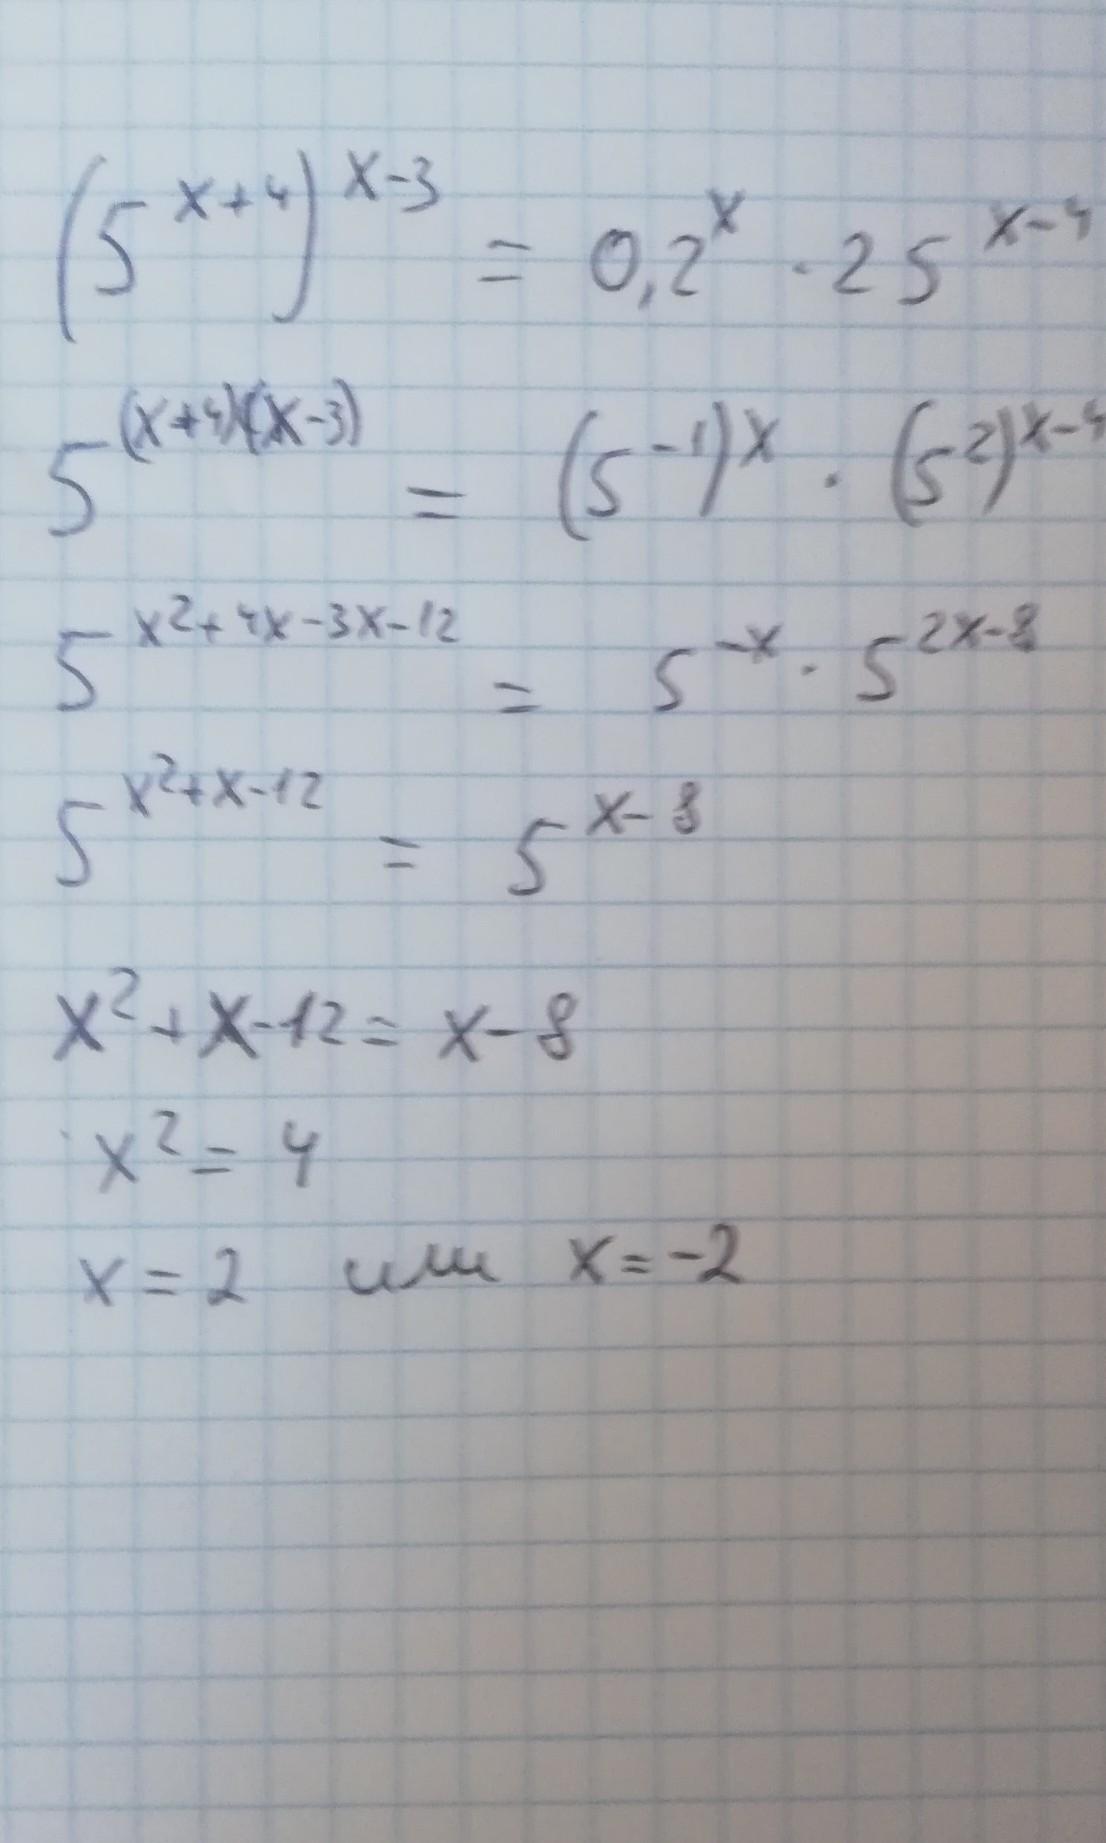 (5^{x+4})^{x-3} = 0,2^x · 25^{x-4}
5^{(x+4)(x-3)} = (5^{-1})^x · (5^2)^{x-4}
5^{x^2+4x-3x-12} = 5^{-x} · 5^{2x-8}
5^{x^2+x-12} = 5^{x-8}
x^2+x-12 = x-8
x^2 = 4
x = 2 или x = -2